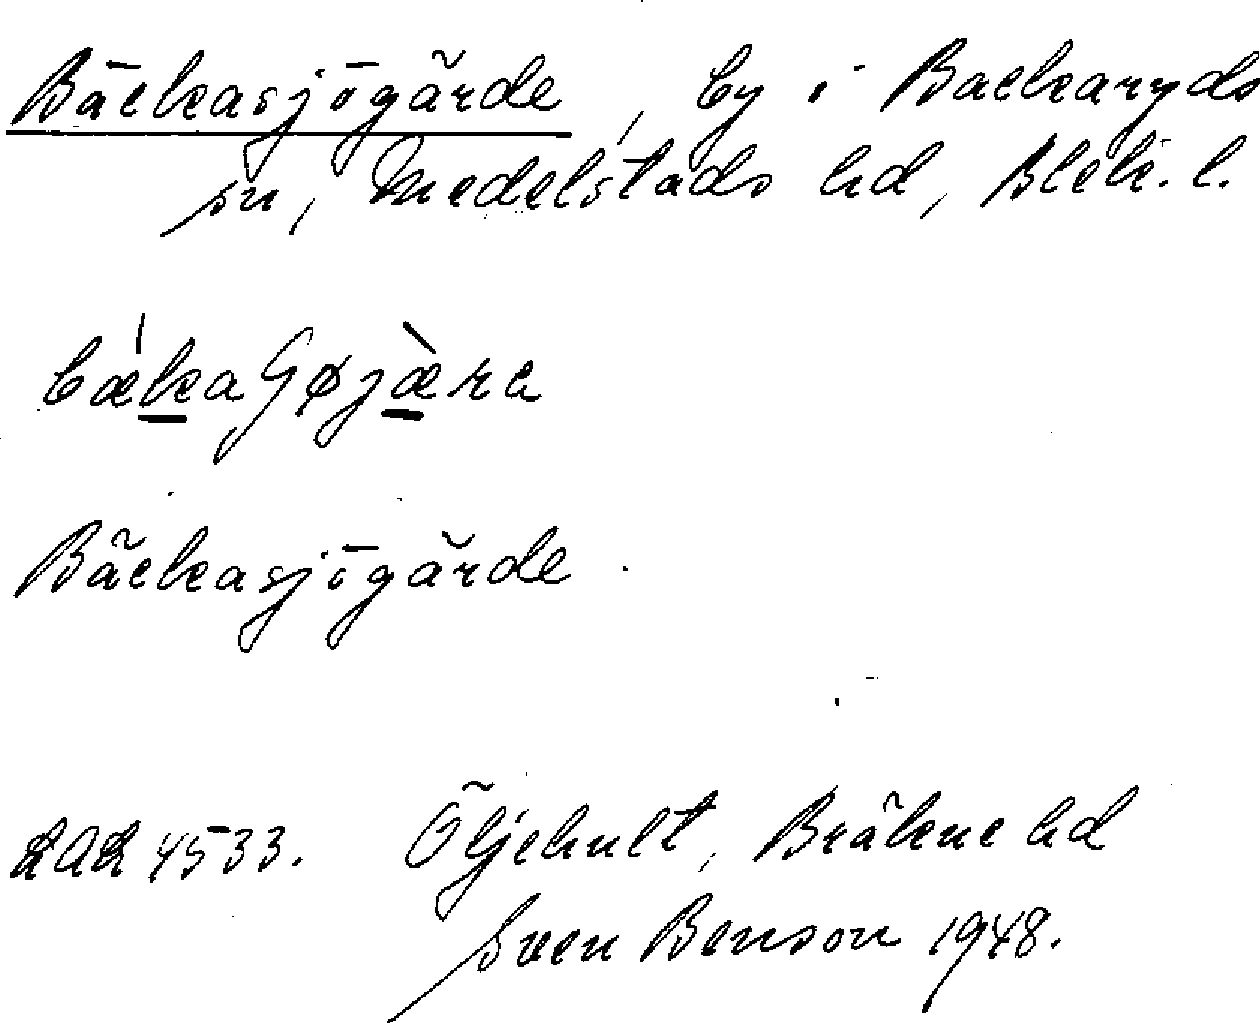 Bäckasjögärde, by i Backaryds
sn, Medelstads hd, Blek. l.
Bäckasjögärde.
4533. Öljehult, Bräkne hd
Sven Benson 1948.